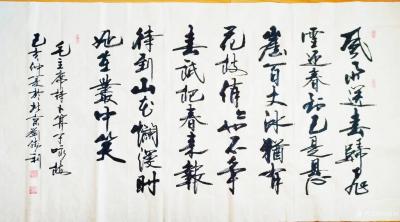 風雨送春歸飛
雪迎春到已是懸
崖百丈冰猶有
花枝俏俏也不争
春祇把春来報
待到山花爛漫时
她在叢中笑
毛主席詩卜算子咏梅
己亥仲夏於北京